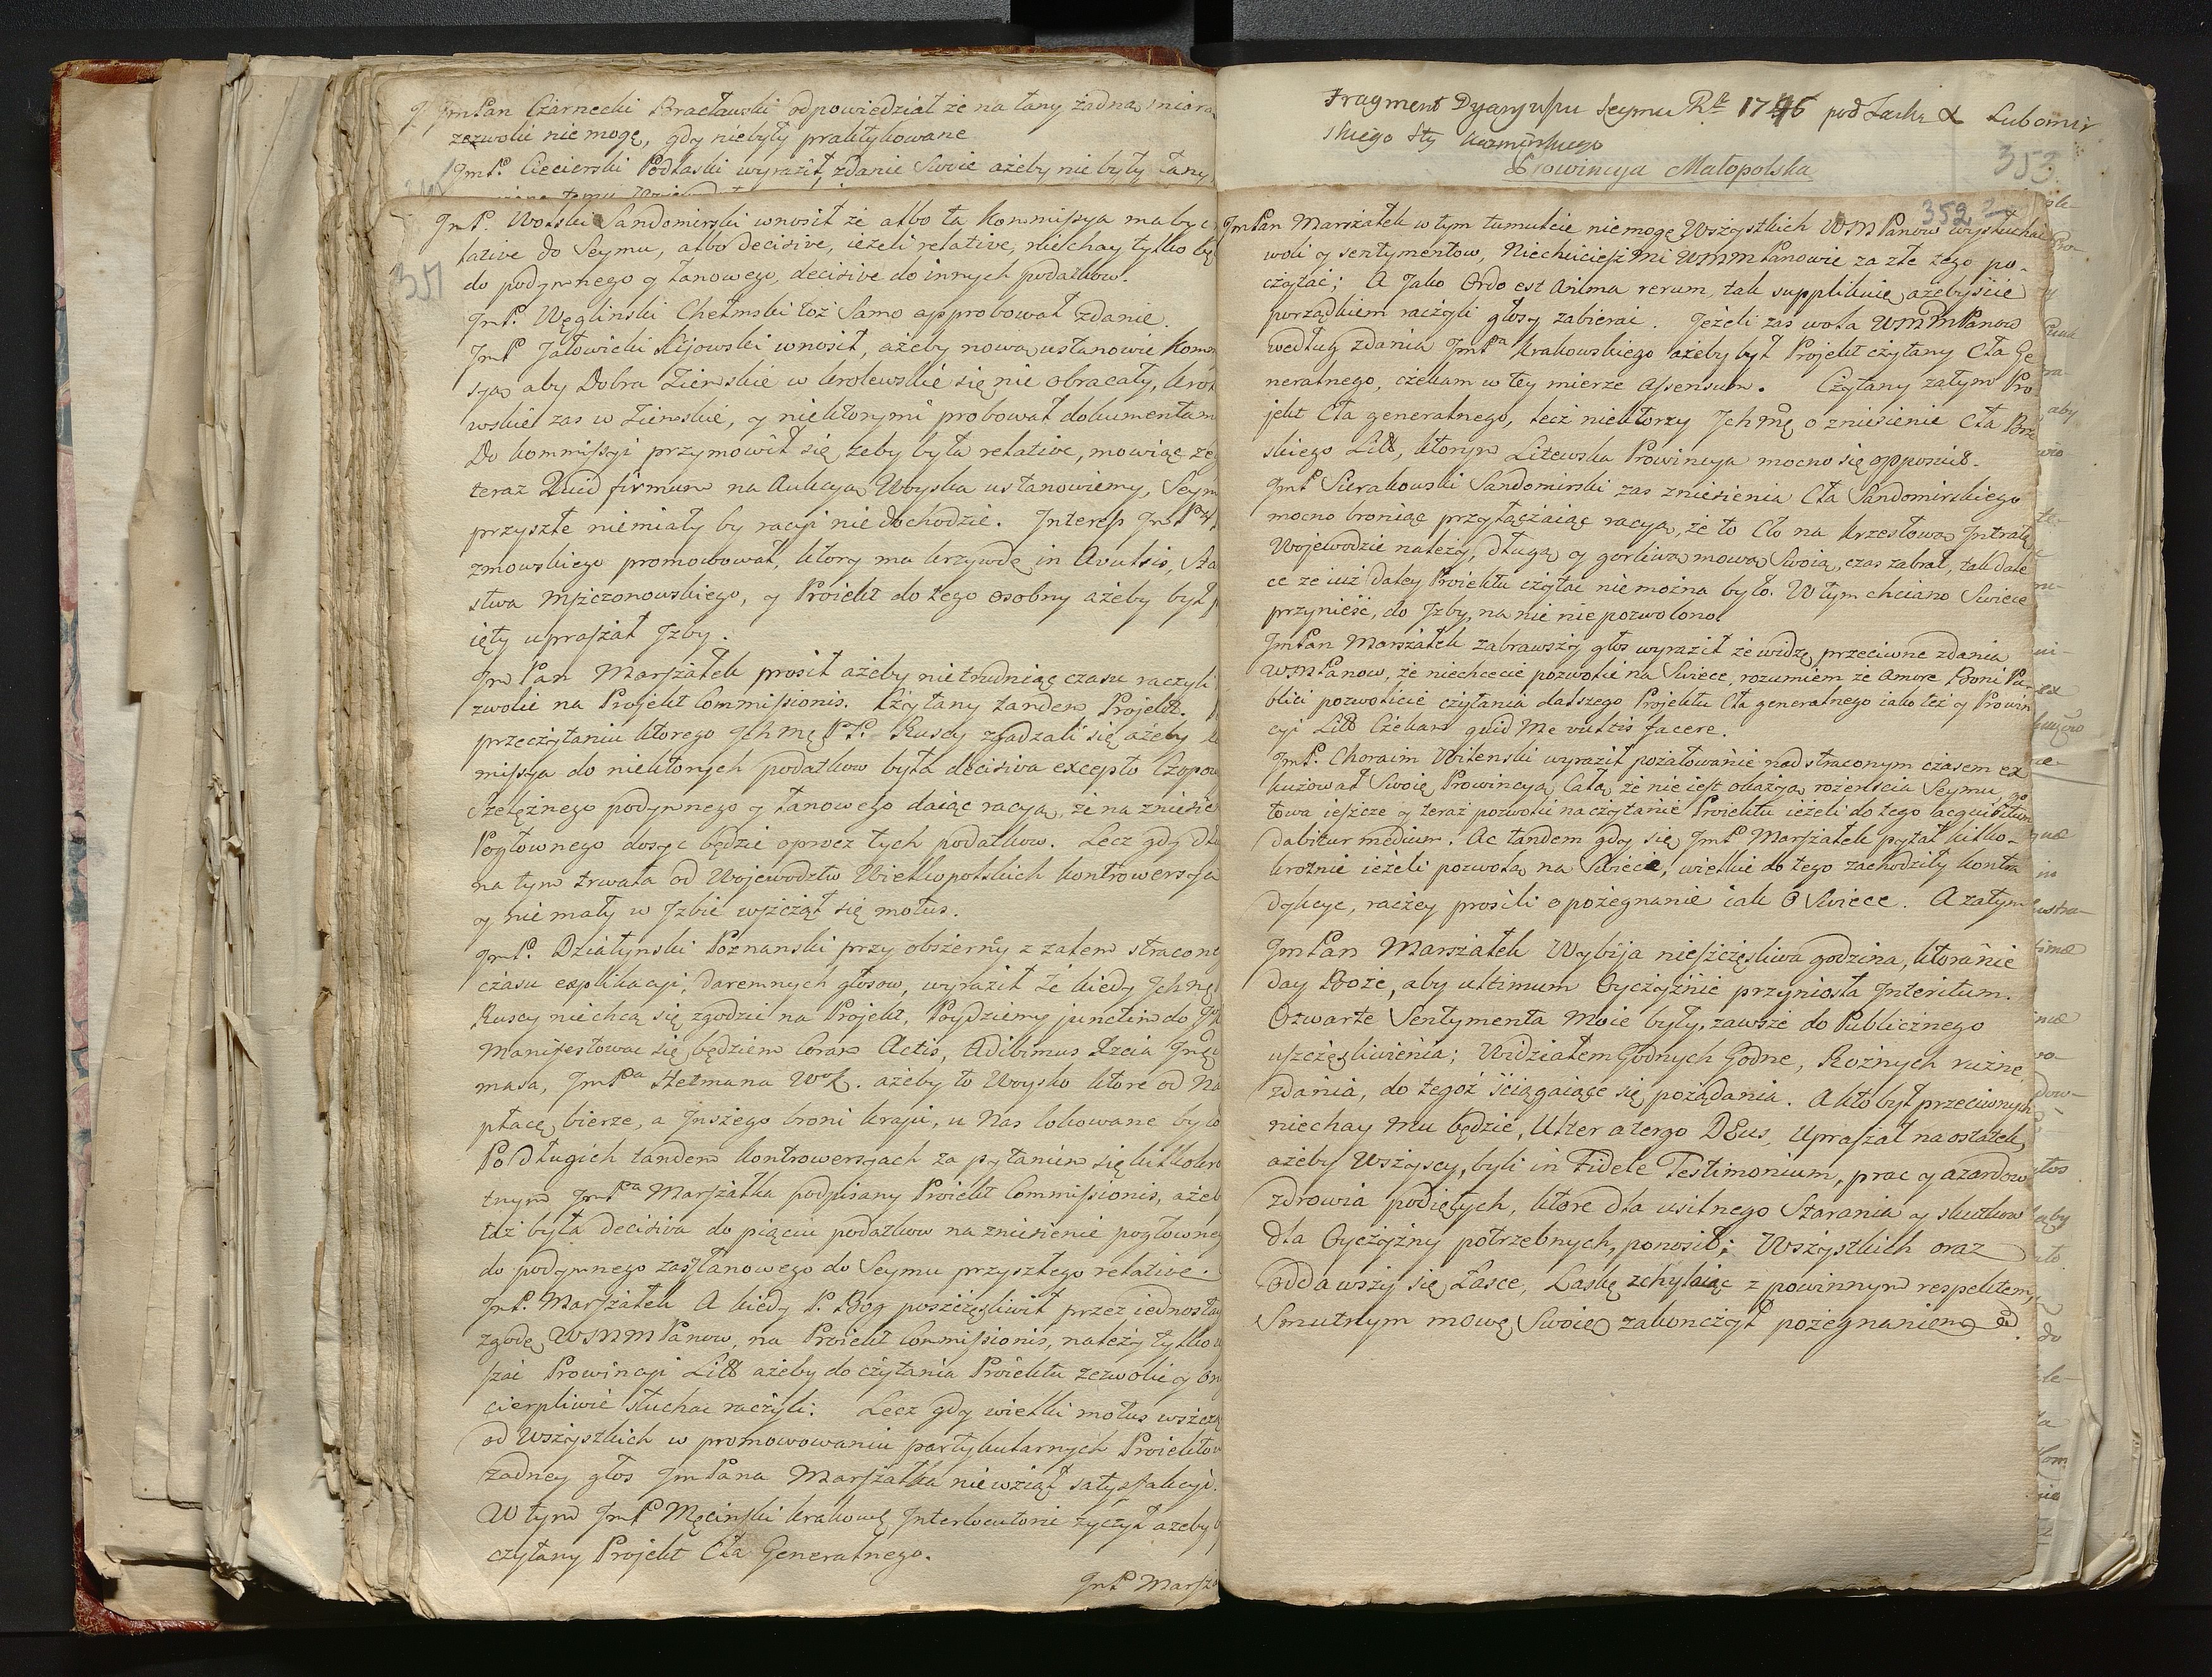 JmPan Czarnecki Bracławski odpowiedział że na łany żadną miarą
zezwolić nie mogę, gdy niebyły praktykowane
JmP. Ciecierski Podlaski wyraził zdanie Swoie ażeby nie były łany
351
JmP. Wolski Sandomirski wnosił że albo ta kommissya ma być
lative do Seymu, albo decisive, ieżeli relative, niechay tylko
do podymnego y łanowego, decisive do innych podatkow.
JmP. Węglinski Chełmski toż Samo approbował zdanie.
JmP Jałowicki Kijowski wnosił, ażeby nową ustanowić Kom
syą aby Dobra Ziemskie w krolewskie się nie obracały, kro
wskie zas w Ziemskie, y niektorymi probował dokumentam
Do kommissyi przymowił się żeby była relative, mowiąc że
teraz Quid firmum na Aukcyą Woyska ustanowiemy, Seym
przyszłe niemiały by racyi nie dochodzić. Interess JmP
zmowskiego promowował, ktory ma krzywdę in Avulsis, Sta
stwa Mszczonowskiego, y Proiekt do tego osobny ażeby był
ięty upraszał Izby.
Jm Pan Marszałek prosił ażeby nie trudniąc czasu raczyli
zwolić na Projekt Commissionis. Czytany tandem Projekt.
przeczytaniu ktorego Ichmę PP. Ruscy zgadzali się ażeby
missya do niektorych podatkow była decisiva excepto Czopow
Szelężnego podymnego y łanowego daiąc racyą, że na zniesie
Pogłownego dosyc będzie oprocz tych podatkow. Lecz gdy dłu
na tym trwała od Wojewodztw Wielkopolskich kontrowersya
y nie mały w Izbie wszczął się motus.
JmP. Działynski Poznanski przy obszerney z żalem stracone
czasu explikacyi, daremnych głosow, wyraził że kiedy Ichmę
Ruscy nie chcą się zgodzić na Projekt, Poydziemy junctim do
Manifestowac się będziem Coram Actis, Adibimus Xcia Jmę
masa, JmPa Hetmana WK. ażeby to Woysko ktore od Na
płacę bierze, a Inszego broni kraju, u Nas lokowane było
Po długich tandem kontrowersyach za pytaniem się kilkokro
tnym JmPa Marszałka podpisany Proiekt Commissionis, ażeb
taż była decisiva do pięciu podatkow na zniesienie pogłowneg
do podymnego zaś łanowego do Seymu przyszłego relative.
JmP. Marszałek A kiedy P. Bog poszczęśliwił przez iednostay
zgodę WMM Panow, na Proiekt Commissionis, należy tylko u
szać Prowincyi Litt ażeby do czytania Proiektu zezwolić y on
cierpliwie słuchac raczyli: Lecz gdy wielki motus wszczą
od Wszystkich w promowowaniu partykularnych Proiektow
żadney głos JmPana Marszałka nie wziął satysfakcyi.
W tym JmP Męcinski krakows Interlocutorie życzył ażeby
czytany Projekt Cła Generalnego.
JmP Marsza
Fragment Dyaryuszu Seymu Rku 1746 pod Laską X Lubomir
skiego Stty Kazimirskiego
Prowincya Małopolska
353
352
JmPan Marszałek w tym tumulcie niemogę Wszystkich WMPanow wysłuchac
woli y sentymentow, Niechcicieszmi WMMPanowie za złe tego po-
czytać; A Jako Ordo est Anima rerum, tak supplikuię ażebyście
porządkiem raczyli głosy zabierac. Jeżeli zas wola WMMPanow
według zdania JmPa krakowskiego ażeby był Projekt czytany Cła Ge
neralnego, czekam w tey mierze Assensum. Czytany zatym Pro
jekt Cła generalnego, lecz niektorzy Ichmę o zniesienie Cła Brze
skiego Litt, ktorym Litewska Prowincya mocno się opposuit.
JmP Sierakowski Sandomirski zas zniesienia Cła Sandomirskiego
mocno broniąc przyłączaiąc racyą, że to Cło na krzesłową Intratę
Wojewodzie należy, długą y gorliwą mową Swoią, czas zabrał, tak dale
ce że iuż daley Proiektu czytac nie można było. W tym chciano Swiece
przynieść, do Izby, na nie nie pozwolono.
JmPan Marszałek zabrawszy głos wyraził że widzę przeciwne zdania
WMPanow, że niechcecie pozwolić na Swiece, rozumiem że Amore Boni Pu-
blici pozwolicie czytania dalszego Projektu Cła generalnego iako też y Prowin
cyi Litt Czekam quid Me vultis facere.
JmP. Chorąży Witenski wyraził pożałowanie nad straconym czasem ex
kuzował Swoię Prowincyą Całą że nie iest okazyą rożenścia Seymu, go
towa ieszcze y teraz pozwolić na czytanie Proiektu ieżeli do tego acquisitum
dabitur medium. Ac tandem gdy się JmP Marszałek pytał kilko-
krotnie ieżeli pozwolą na Swiece, wielkie do tego zachodziły kontra
dykcye, raczey prosili o pożegnanie iak o Swiece. A zatym
JmPan Marszałek Wybija nieszczęśliwa godzina, ktora nie
day Boże, aby ultimum Oyczyznie przyniosła Interitum.
Otwarte Sentymenta Moie były, zawsze do Publicznego
uszczęśliwienia; Widziałem Godnych Godne, Rożnych rużne
zdania, do tegoż ściągaiące się pożądania. A kto był przeciwnych
niechay Mu będzie, Ulter a tergo DEus, Upraszał na ostatek,
ażeby Wszyscy, byli in Fidele Testimonium, prac y azardow
zdrowia podiętych, ktore dla usilnego Starania y skutkow
dla Oyczyzny potrzebnych, ponosił; Wszystkich oraz
oddawszy się Łasce, Laskę zchylaiąc z powinnym respektem,
Smutnym mowę Swoię zakonczył pożegnaniem.